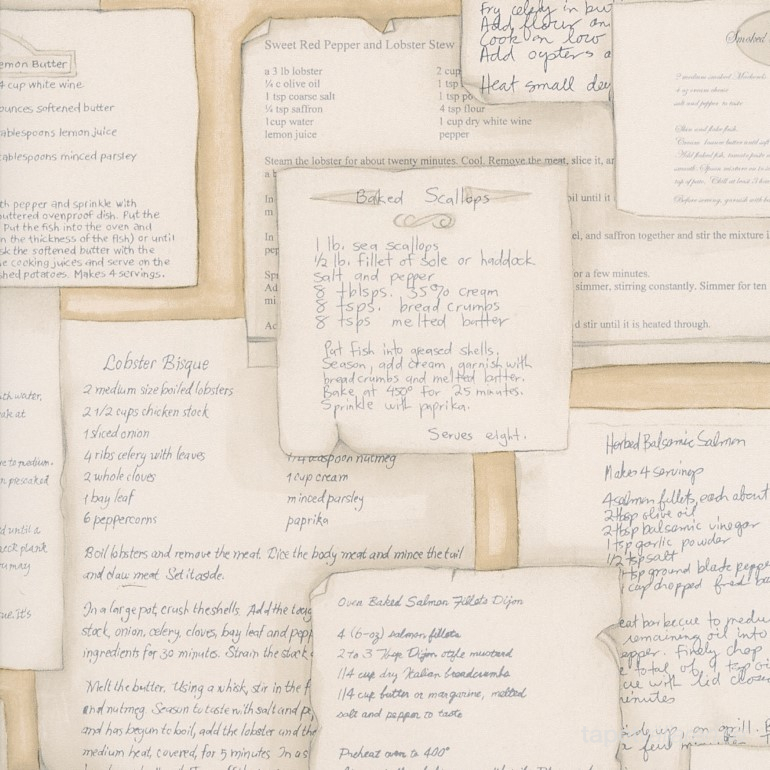 emon Butter
4 cup white wine
ounces softened butter
tablespoons lemon juice
tablespoons minced parsley
th pepper and sprinkle with
buttered ovenproof dish. Put the
Put the fish into the oven and
n the thickness of the fish) or until
sk the softened butter with the
e cooking juices and serve on the
shed potatoes. Makes 4 servings.
Sweet Red Pepper and Lobster Stew
a 3 lb lobster
¼ c olive oil
1 tsp coarse salt
¼ tsp saffron
1 cup water
lemon juice
2 cup
1 tsp
1 tsp po
4 tsp flour
1 cup dry white wine
pepper
Steam the lobster for about twenty minutes. Cool. Remove the meat, slice it, ar
a b
In
oil until it
In
el, and saffron together and stir the mixture i
Spr
or a few minutes.
Ad
simmer, stirring constantly. Simmer for ten
mi
Ad
d stir until it is heated through.
Fry celery in but
Add flour an
Cook on low
Add oysters a
Heat small dee
Smoked
2 medium smoked
salt and pepper to taste
Skin and flake fish.
Baked Scallops
1 lb. sea scallops
½ lb. fillet of sole or haddock
salt and pepper
8 tblsps. 35% cream
8 tsps. bread crumbs
8 tsps melted butter
Put fish into greased shells.
Season, add cream, garnish with
breadcrumbs and melted butter.
Bake at 450° for 25 minutes.
Sprinkle with paprika.
Serves eight.
Lobster Bisque
2 medium size boiled lobsters
2 1/2 cups chicken stock
1 sliced onion
4 ribs celery with leaves
2 whole cloves
1 bay leaf
6 peppercorns
1/4 teaspoon nutmeg
1 cup cream
minced parsley
paprika
Boil lobsters and remove the meat. Dice the body meat and mince the tail
and claw meat. Set it aside.
In a large pot, crush the shells. Add the toug
stock, onion, celery, cloves, bay leaf and pepp
ingredients for 30 minutes. Strain the stock
Melt the butter. Using a whisk, stir in the f
and nutmeg. Season to taste with salt and pe
and has begun to boil, add the lobster and the
medium heat, covered, for 5 minutes. In a s
th water,
re to medium.
n presoaked
d until a
uck plank
u may
ue. It's
Oven Baked Salmon Fillets Dijon
4 (6-oz) salmon fillets
2 to 3 Tbsp Dijon style mustard
1/4 cup dry Italian breadcrumbs
1/4 cup butter or margarine, melted
salt and pepper to taste
Preheat oven to 400°
Herbed Balsamic Salmon
Makes 4 servings
4 salmon fillets, each about
2 tbsp olive oil
2 tbsp balsamic vinegar
1 tsp garlic powder
1/2 tsp salt
1 tsp ground black pepper
cup chopped fresh ba
eat barbecue to mediu
remaining oil into
epper. Finely chop
e total of 9 tsp oi
ue with lid closed
minutes
on grill. B
a few minutes